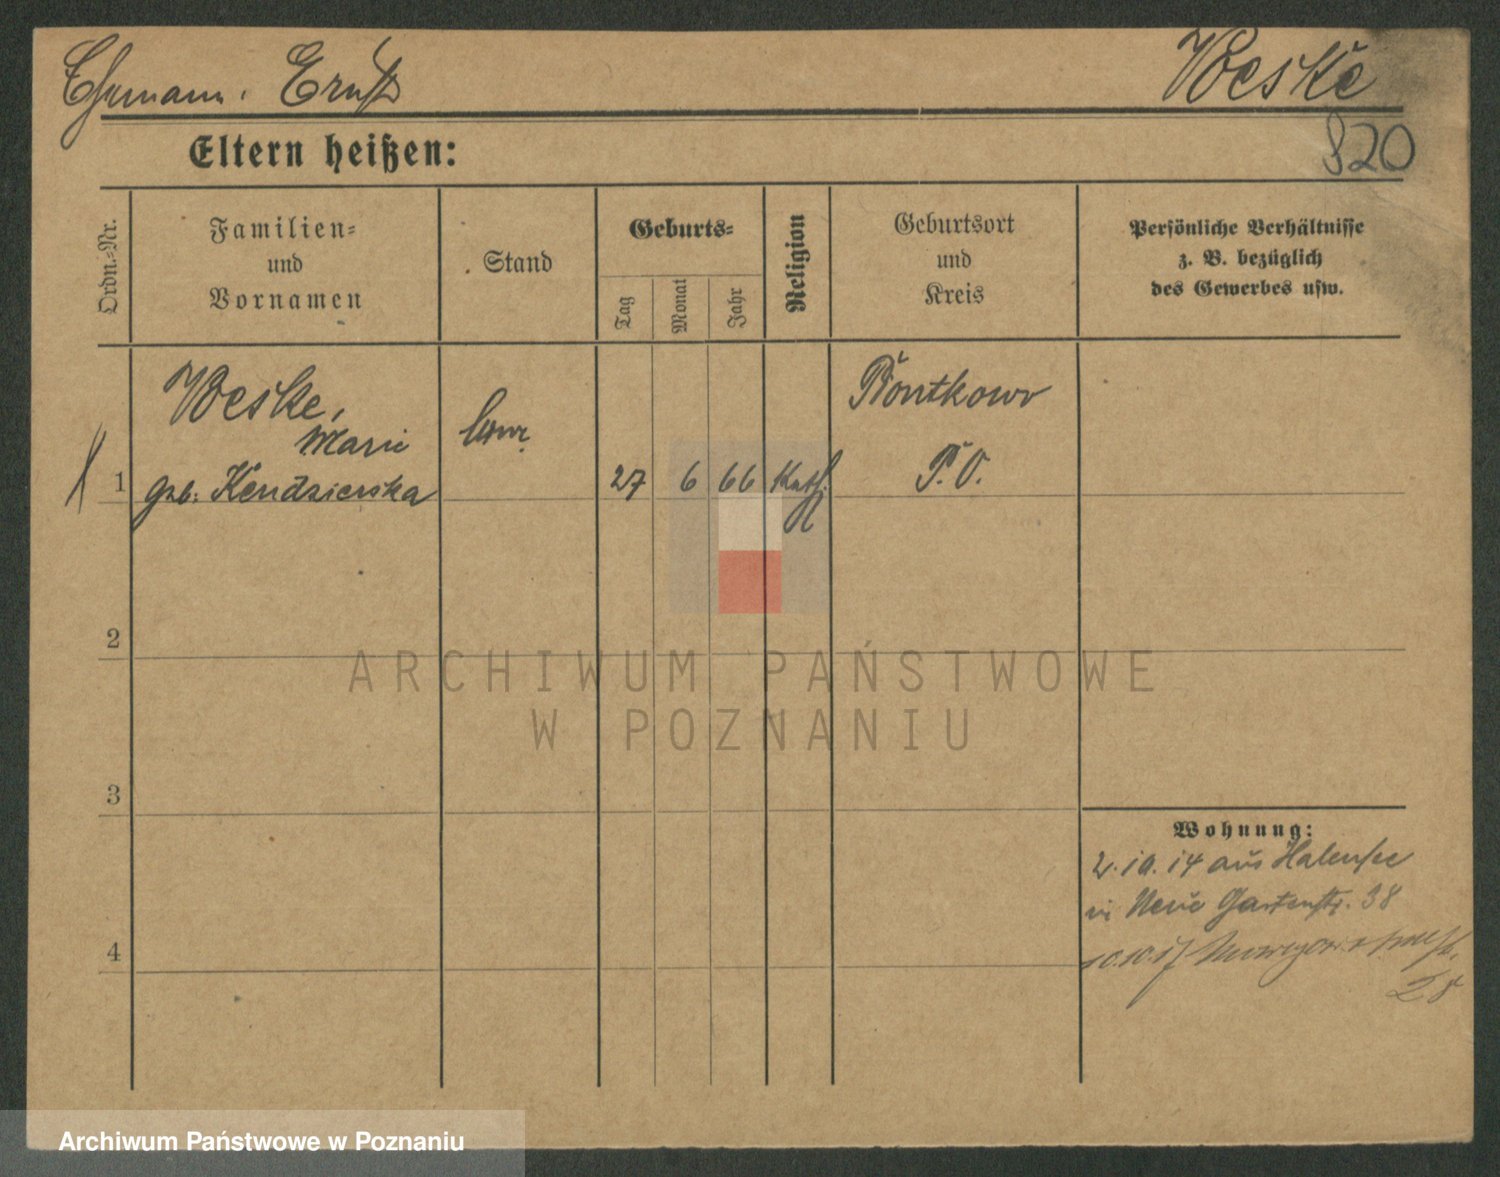 Ehemann. Ernst
Weske
820
Eltern heißen:
Ordn.-Nr.
Familien-
und
Vornamen
Stand
Geburts-
Tag
Monat
Jahr
Religion
Geburtsort
und
Kreis
Persönliche Verhältnisse
z. B. bezüglich
des Gewerbes usw.
Weske,
Marie
1 geb. Kendzierska
27 6 66 Kath.
Piontkowo
P. O.
2
ARCHIWUM PAŃSTWOWE
W POZNANIU
3
Wohnung:
2.10.14 aus Halensee
in Neue Gartenstr. 38
4
10.10.17
28
Archiwum Państwowe w Poznaniu